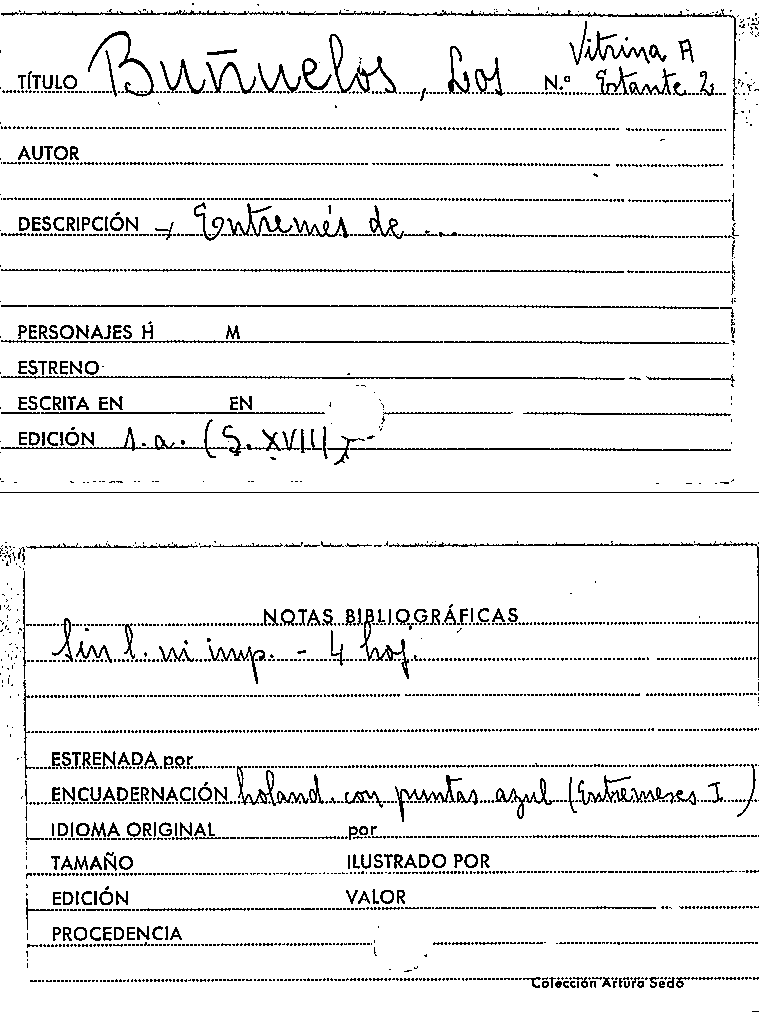 Vitrina A
TÍTULO Buñuelos, Los N.º Estante 2
AUTOR
DESCRIPCIÓN → Entremés de ...
PERSONAJES H M
ESTRENO
ESCRITA EN EN
EDICIÓN s.a. (S. XVIII)
NOTAS BIBLIOGRÁFICAS
Sin l. ni imp. - 4 hoj.
ESTRENADA por
ENCUADERNACIÓN holand. con puntas azul (Entremeses I)
IDIOMA ORIGINAL por
TAMAÑO ILUSTRADO POR
EDICIÓN VALOR
PROCEDENCIA
Colección Arturo Sedó